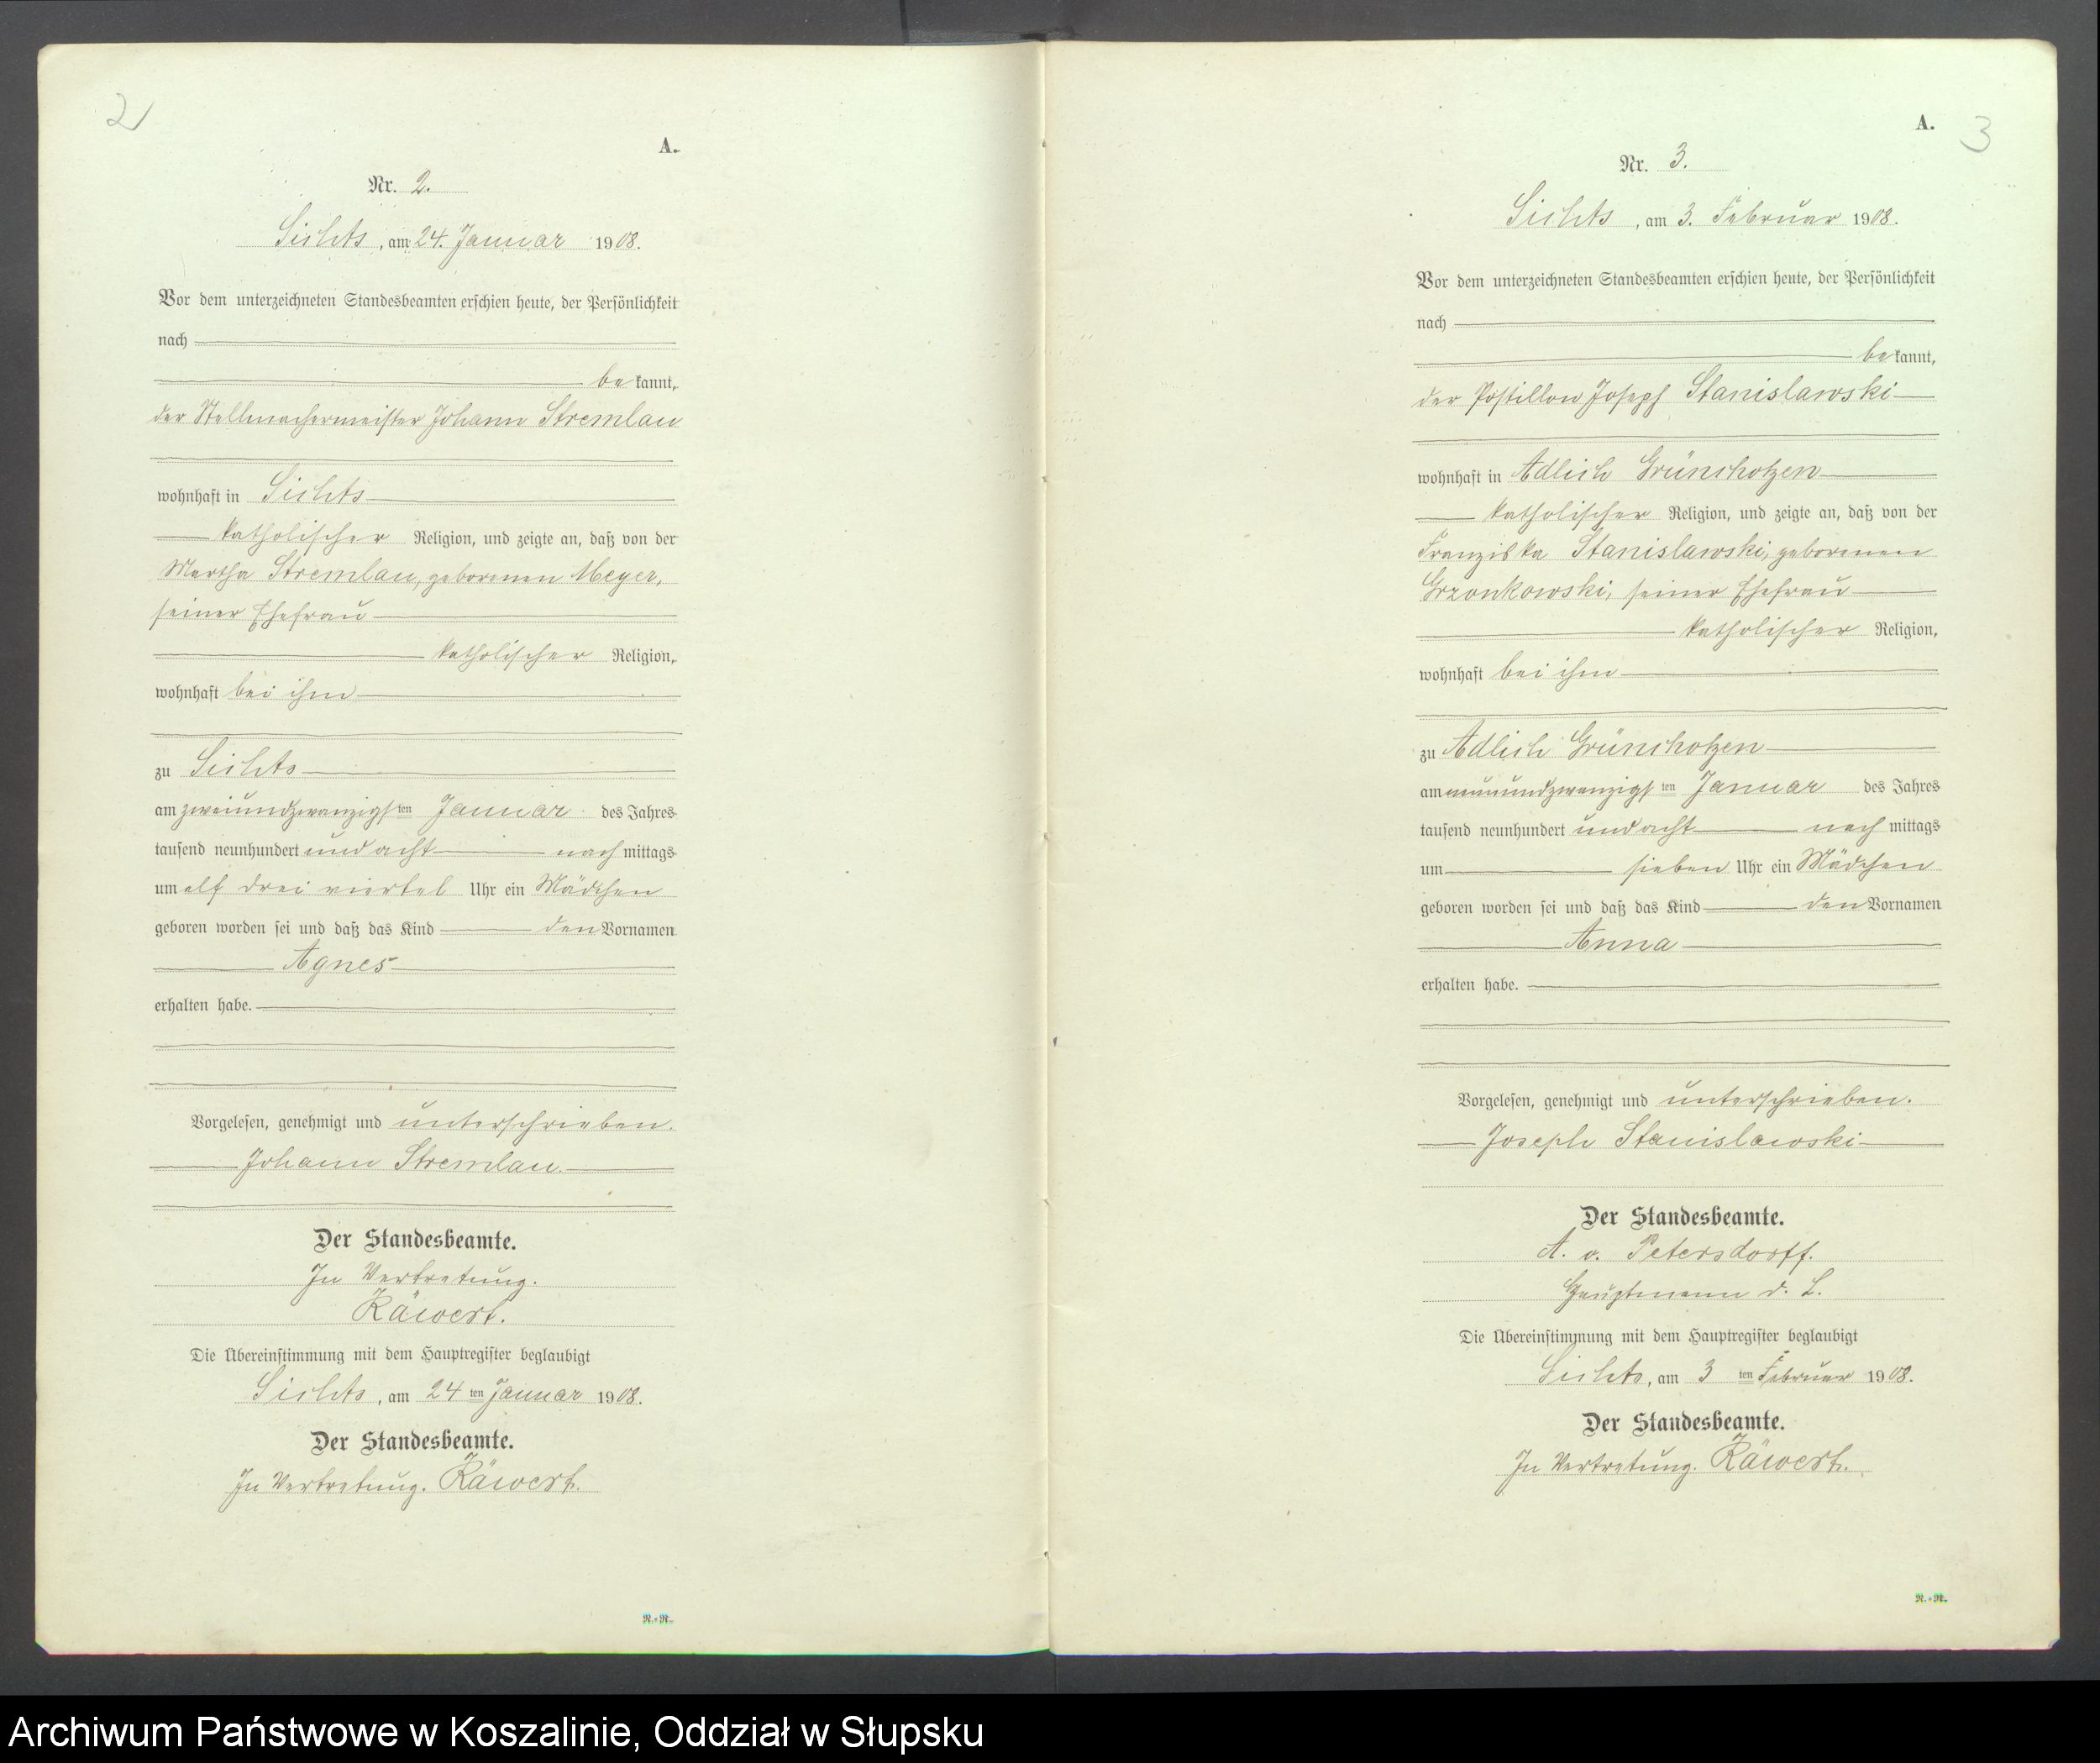 2
A.
Nr. 2.
Sichts, am 24. Januar 1908.
Vor dem unterzeichneten Standesbeamten erschien heute, der Persönlichkeit
nach
bekannt,
der Stellmachermeister Johann Stremlau
wohnhaft in Sichts
katholischer Religion, und zeigte an, daß von der
Martha Stremlau, geborenen Meyer,
seiner Ehefrau
katholischer Religion,
wohnhaft bei ihm
zu Sichts
am zweiundzwanzigsten Januar des Jahres
tausend neunhundert und acht nachmittags
um elf drei viertel Uhr ein Mädchen
geboren worden sei und daß das Kind den Vornamen
Agnes
erhalten habe.
Vorgelesen, genehmigt und unterschrieben.
Johann Stremlau.
Der Standesbeamte.
In Vertretung.
Räwert.
Die Übereinstimmung mit dem Hauptregister beglaubigt
Sichts, am 24 ten Januar 1908.
Der Standesbeamte.
In Vertretung. Räwert.
R.-R.
A.
3
Nr. 3.
Sichts, am 3. Februar 1908.
Vor dem unterzeichneten Standesbeamten erschien heute, der Persönlichkeit
nach
bekannt,
der Postillon Joseph Stanislawski
wohnhaft in Adlich Grünchotzen
katholischer Religion, und zeigte an, daß von der
Franziska Stanislawski, geborenen
Grzonkowski, seiner Ehefrau
katholischer Religion,
wohnhaft bei ihm
zu Adlich Grünchotzen
am neunundzwanzigsten Januar des Jahres
tausend neunhundert und acht nachmittags
um sieben Uhr ein Mädchen
geboren worden sei und daß das Kind den Vornamen
Anna
erhalten habe.
Vorgelesen, genehmigt und unterschrieben.
Joseph Stanislawski
Der Standesbeamte.
A. v. Petersdorff.
Hauptmann d. L.
Die Übereinstimmung mit dem Hauptregister beglaubigt
Sichts, am 3 ten Februar 1908.
Der Standesbeamte.
In Vertretung. Räwert.
R.-R.
Archiwum Państwowe w Koszalinie, Oddział w Słupsku